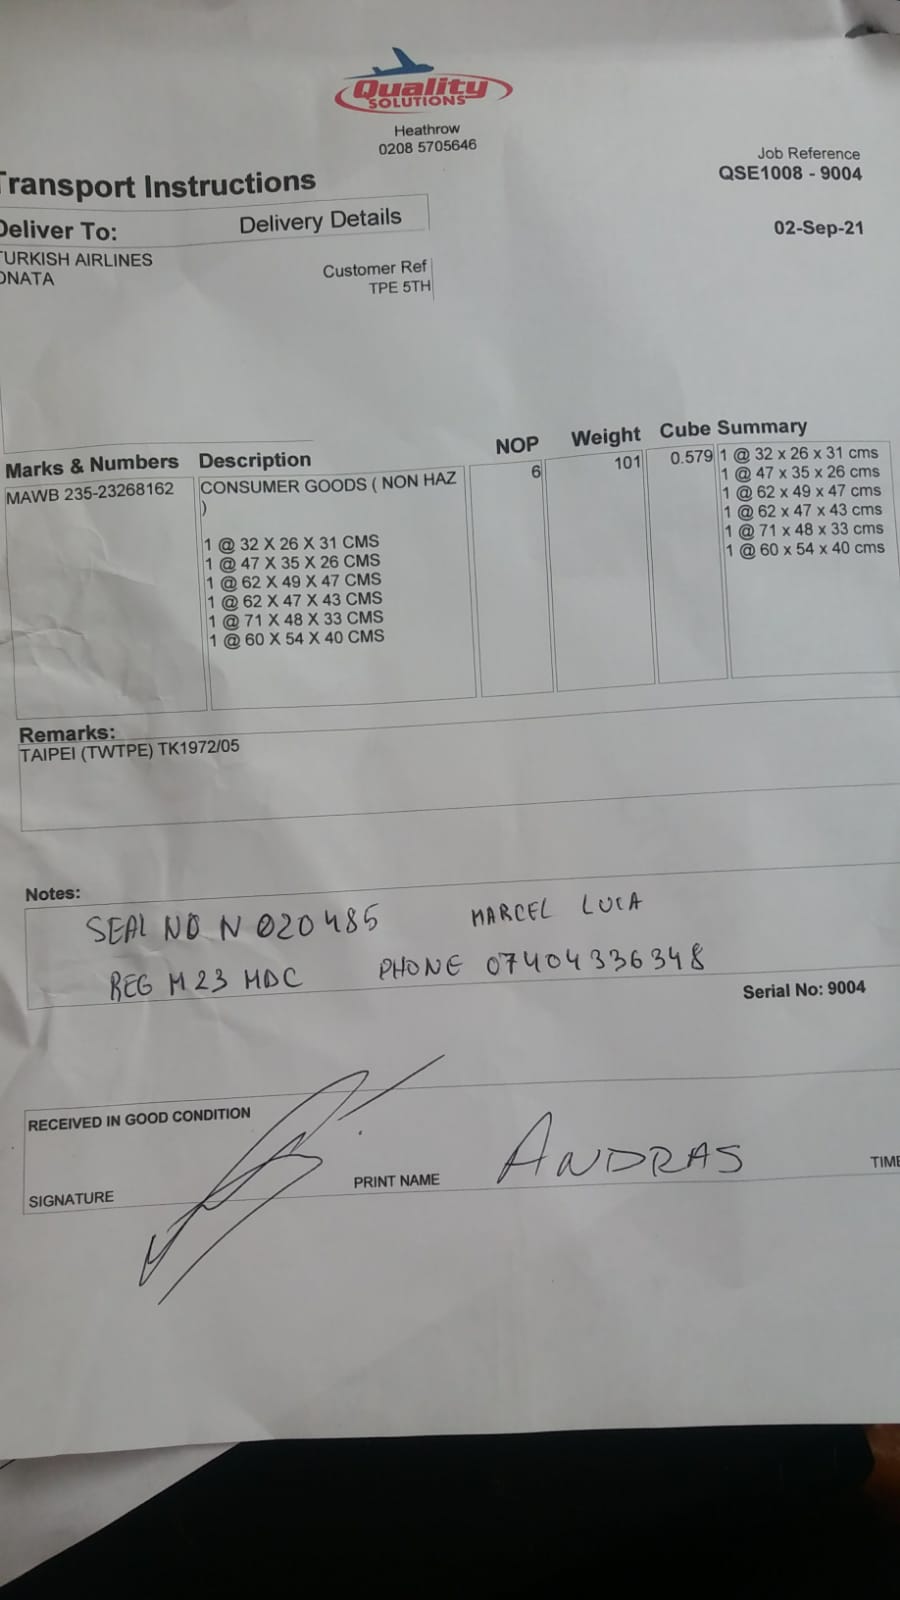 Quality
SOLUTIONS
Heathrow
0208 5705646
Job Reference
QSE1008 - 9004
Transport Instructions
Deliver To:
Delivery Details
02-Sep-21
TURKISH AIRLINES
DNATA
Customer Ref
TPE 5TH
Marks & Numbers Description NOP Weight Cube Summary
MAWB 235-23268162
CONSUMER GOODS ( NON HAZ
)
1 @ 32 X 26 X 31 CMS
1 @ 47 X 35 X 26 CMS
1 @ 62 X 49 X 47 CMS
1 @ 62 X 47 X 43 CMS
1 @ 71 X 48 X 33 CMS
1 @ 60 X 54 X 40 CMS
6
101
0.579
1 @ 32 x 26 x 31 cms
1 @ 47 x 35 x 26 cms
1 @ 62 x 49 x 47 cms
1 @ 62 x 47 x 43 cms
1 @ 71 x 48 x 33 cms
1 @ 60 x 54 x 40 cms
Remarks:
TAIPEI (TWTPE) TK1972/05
Notes:
SEAL NO N 020485 MARCEL LUCA
REG M23 MDC PHONE 07404336348
Serial No: 9004
RECEIVED IN GOOD CONDITION
SIGNATURE
PRINT NAME
ANDRAS
TIME